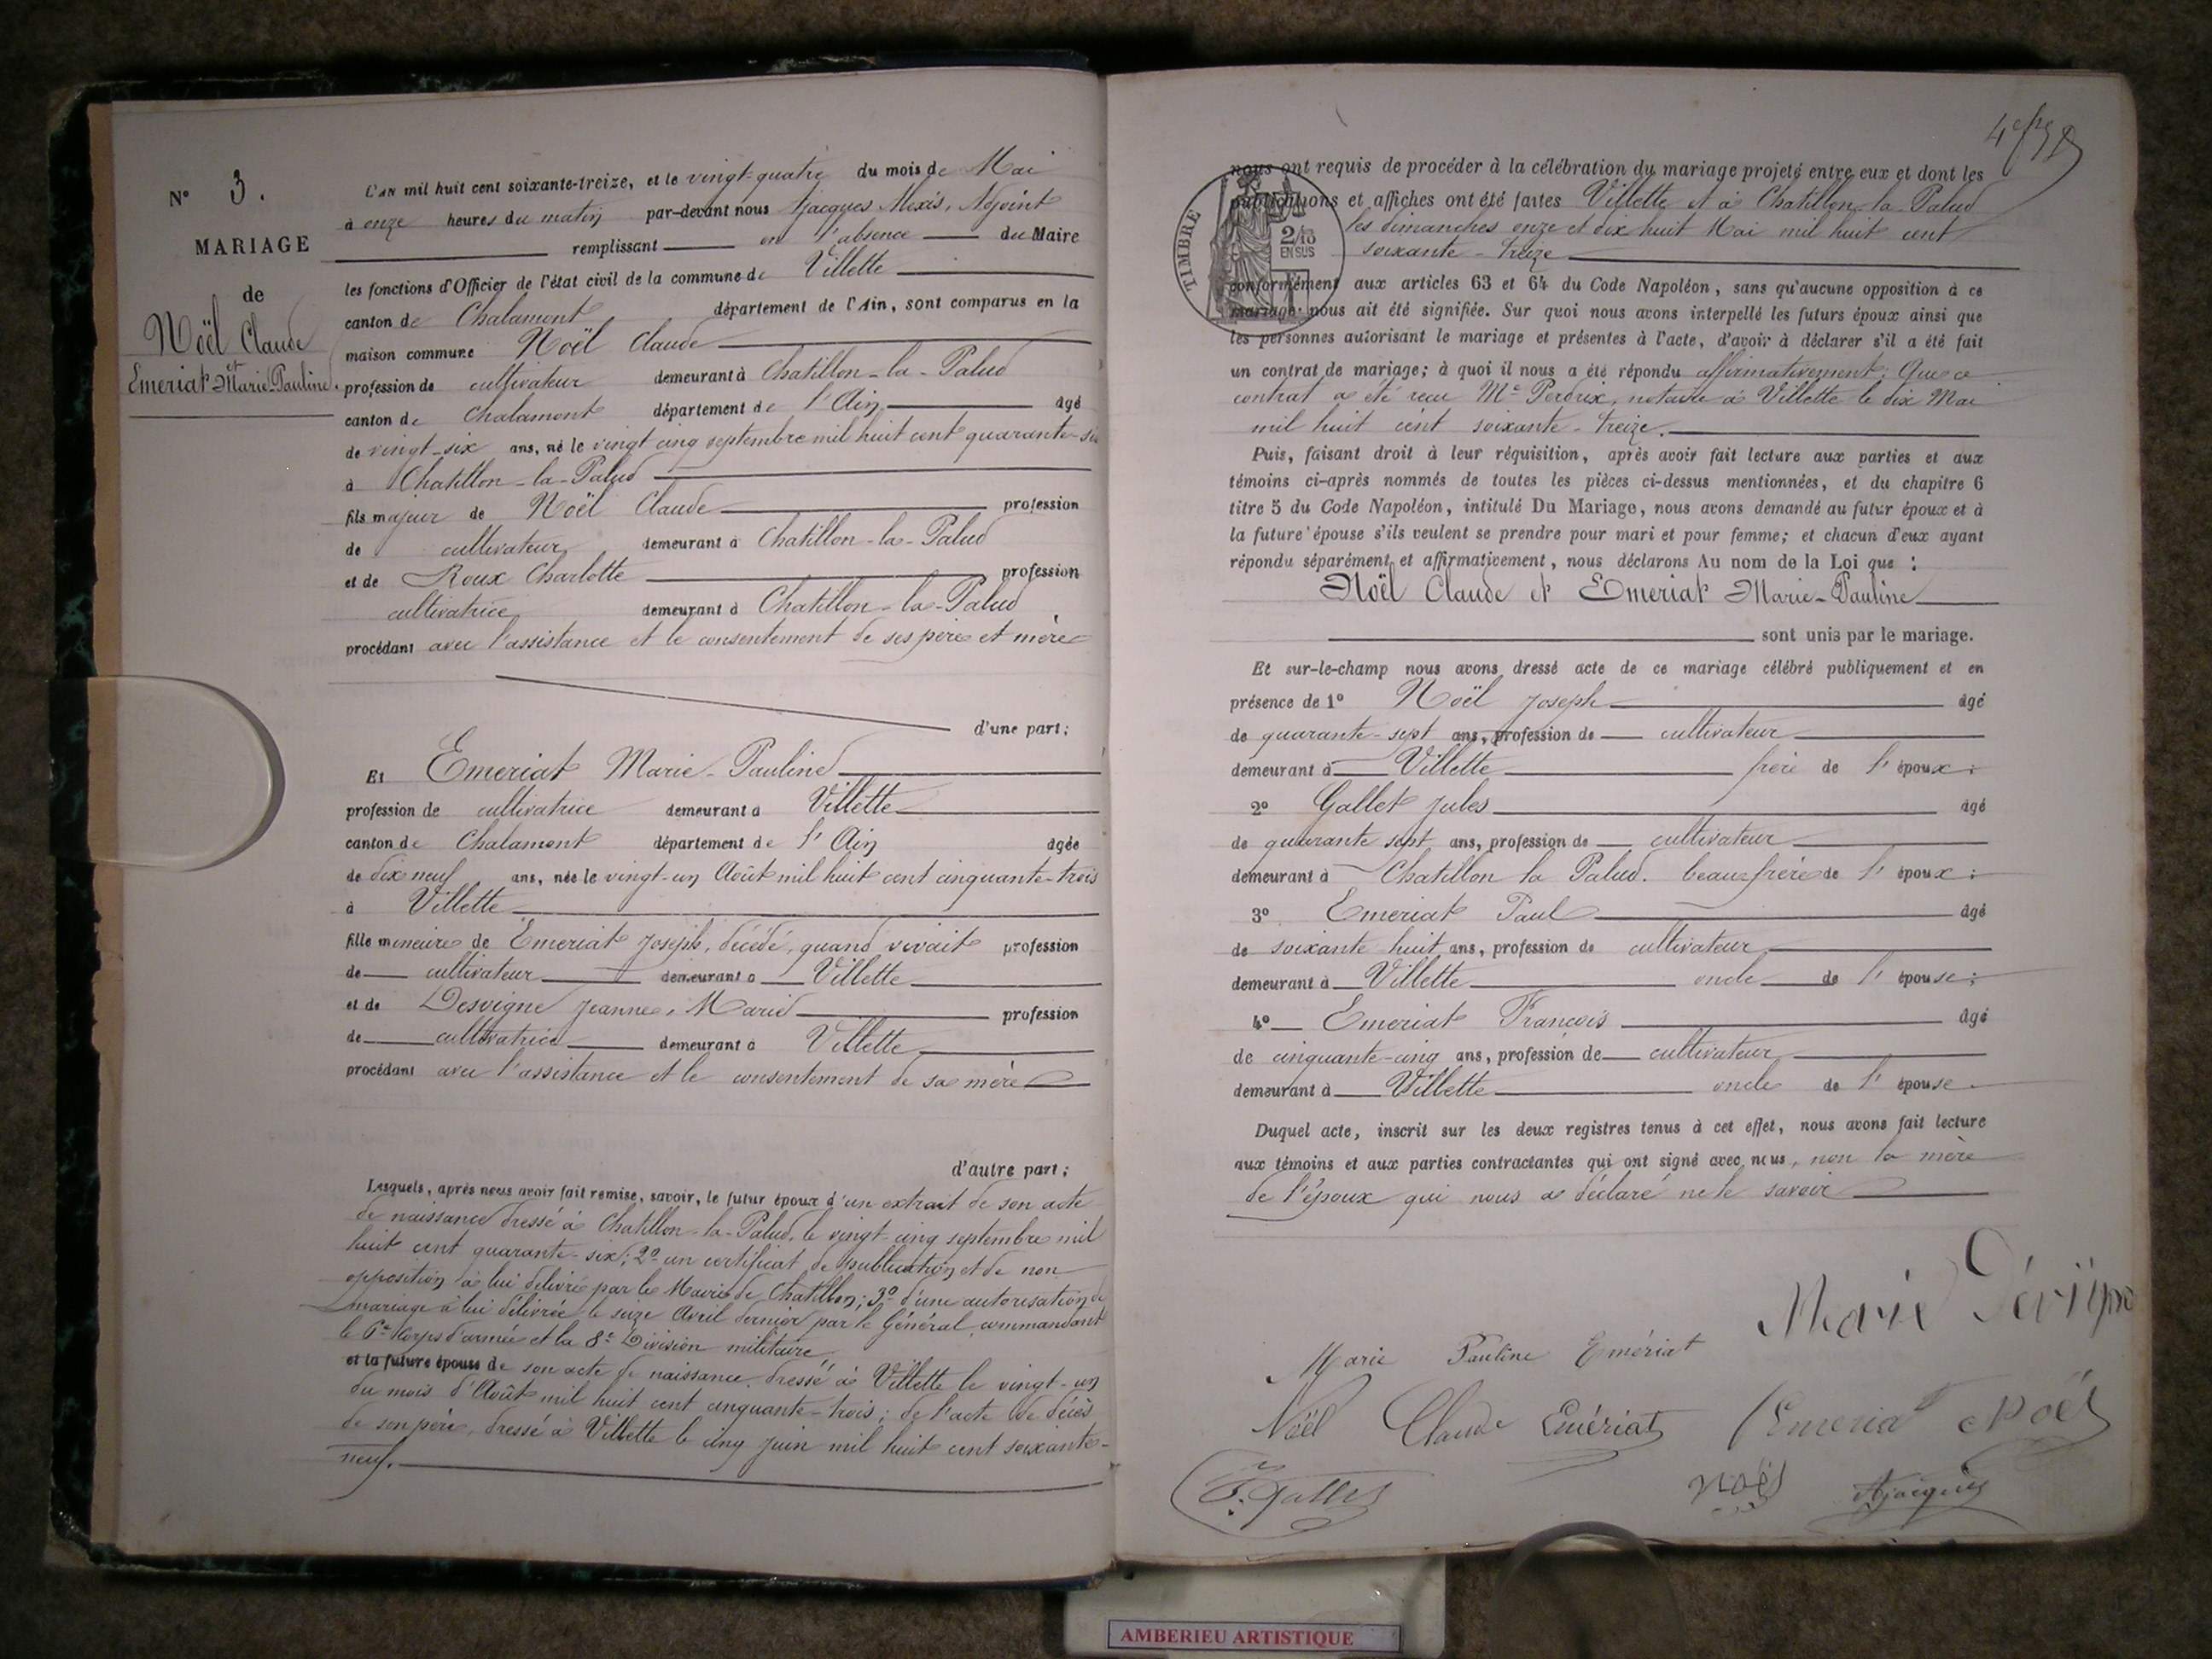 N° 3.
MARIAGE
de
Noël Claude
et
Emeriat Marie-Pauline.
L'an mil huit cent soixante-treize, et le vingt-quatre du mois de Mai
à onze heures du matin par-devant nous Ajacques Alexis, Adjoint
remplissant en l'absence du Maire
les fonctions d'Officier de l'état civil de la commune de Villette
canton de Chalamont département de l'Ain, sont comparus en la
maison commune Noël Claude
profession de cultivateur demeurant à Chatillon-la-Palud
canton de Chalamont département de l'Ain âgé
de vingt-six ans, né le vingt cinq septembre mil huit cent quarante-six
à Chatillon-la-Palud
fils majeur de Noël Claude profession
de cultivateur demeurant à Chatillon-la-Palud
et de Roux Charlotte profession
cultivatrice demeurant à Chatillon-la-Palud
procédant avec l'assistance et le consentement de ses père et mère
d'une part;
Et Emeriat Marie-Pauline
profession de cultivatrice demeurant à Villette
canton de Chalamont département de l'Ain âgée
de dix neuf ans, née le vingt-un Août mil huit cent cinquante-trois
à Villette
fille mineure de Emeriat Joseph, décédé, quand vivait profession
de cultivateur demeurant à Villette
et de Desvigne Jeanne-Marie profession
de cultivatrice demeurant à Villette
procédant avec l'assistance et le consentement de sa mère
d'autre part;
Lesquels, après nous avoir fait remise, savoir, le futur époux d'un extrait de son acte
de naissance dressé à Chatillon-la-Palud, le vingt-cinq septembre mil
huit cent quarante-six; 2° un certificat de publication et de non
opposition à lui délivré par le Maire de Chatillon; 3° d'une autorisation de
mariage à lui délivrée le seize Avril dernier par le Général commandant
le 6e Corps d'armée et la 8e Division militaire
et la future épouse de son acte de naissance dressé à Villette le vingt-un
du mois d'Août mil huit cent cinquante-trois; de l'acte de décès
de son père, dressé à Villette le cinq juin mil huit cent soixante-
neuf.
TIMBRE
2/10
EN SUS
nous ont requis de procéder à la célébration du mariage projeté entre eux et dont les
publications et affiches ont été faites Villette et à Chatillon-la-Palud
les dimanches onze et dix huit Mai mil huit cent
soixante-treize
conformément aux articles 63 et 64 du Code Napoléon, sans qu'aucune opposition à ce
mariage nous ait été signifiée. Sur quoi nous avons interpellé les futurs époux ainsi que
les personnes autorisant le mariage et présentes à l'acte, d'avoir à déclarer s'il a été fait
un contrat de mariage; à quoi il nous a été répondu affirmativement; Que ce
contrat a été reçu Me Perdrix, notaire à Villette le dix Mai
mil huit cent soixante-treize.
Puis, faisant droit à leur réquisition, après avoir fait lecture aux parties et aux
témoins ci-après nommés de toutes les pièces ci-dessus mentionnées, et du chapitre 6
titre 5 du Code Napoléon, intitulé Du Mariage, nous avons demandé au futur époux et à
la future épouse s'ils veulent se prendre pour mari et pour femme; et chacun d'eux ayant
répondu séparément et affirmativement, nous déclarons Au nom de la Loi que :
Noël Claude et Emeriat Marie-Pauline
sont unis par le mariage.
Et sur-le-champ nous avons dressé acte de ce mariage célébré publiquement et en
présence de 1° Noël Joseph âgé
de quarante-sept ans, profession de cultivateur
demeurant à Villette frère de l'époux;
2° Gallet Jules âgé
de quarante sept ans, profession de cultivateur
demeurant à Chatillon la Palud. beau frère de l'époux;
3° Emeriat Paul âgé
de soixante huit ans, profession de cultivateur
demeurant à Villette oncle de l'épouse;
4° Emeriat François âgé
de cinquante-cinq ans, profession de cultivateur
demeurant à Villette oncle de l'épouse
Duquel acte, inscrit sur les deux registres tenus à cet effet, nous avons fait lecture
aux témoins et aux parties contractantes qui ont signé avec nous, non la mère
de l'époux qui nous a déclaré ne le savoir
Marie
Marie Pauline Emériat
Noël Claude Emériat Emeriat Noël
J. Gallet Noël Ajacques
AMBERIEU ARTISTIQUE